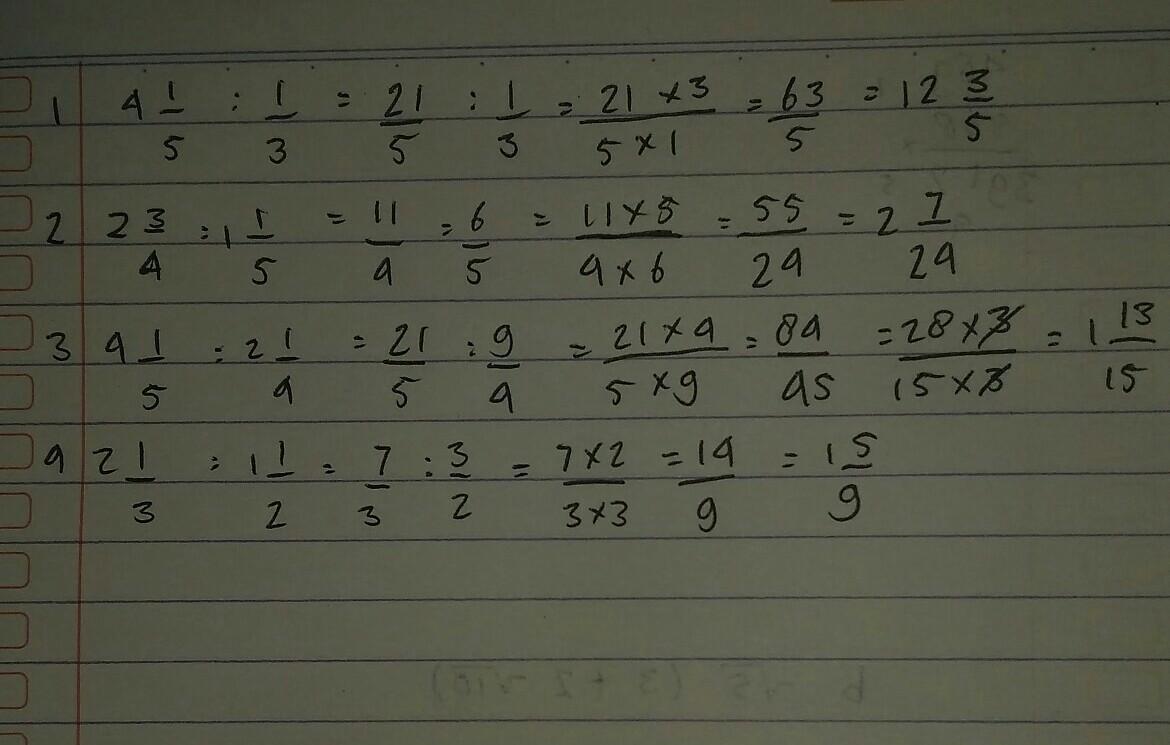 1 4 1/5 : 1/3 = 21/5 : 1/3 = 21 × 3/5 × 1 = 63/5 = 12 3/5
2 2 3/4 : 1 1/5 = 11/4 : 6/5 = 11 × 5/4 × 6 = 55/24 = 2 7/24
3 4 1/5 : 2 1/4 = 21/5 : 9/4 = 21 × 4/5 × 9 = 84/45 = 28 × 3/15 × 3 = 1 13/15
4 2 1/3 : 1 1/2 = 7/3 : 3/2 = 7 × 2/3 × 3 = 14/9 = 1 5/9